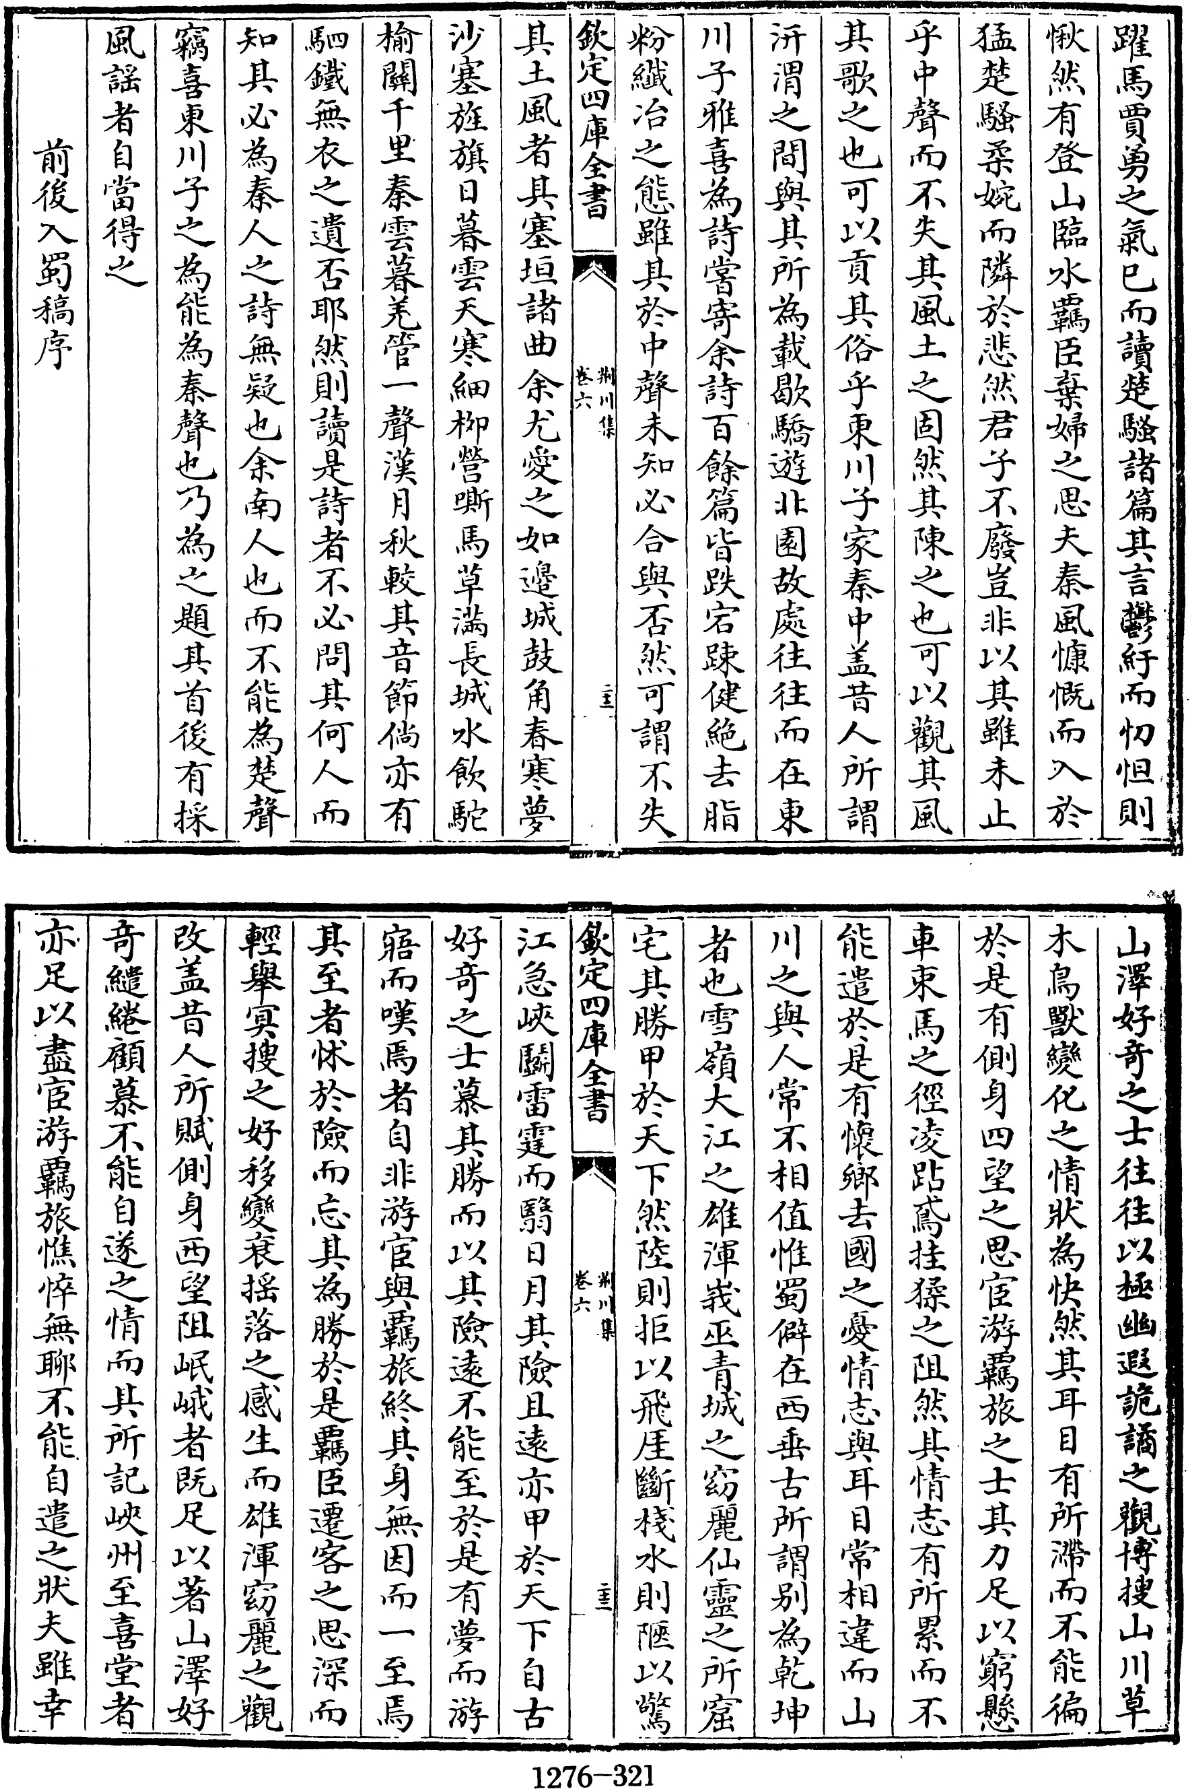 躍馬賈勇之氣已而讀楚騷諸篇其言鬱紆而忉怛則
愀然有登山臨水羈臣棄婦之思夫秦風慷慨而入於
猛楚騷柔婉而隣於悲然君子不廢豈非以其雖未止
乎中聲而不失其風土之固然其陳之也可以觀其風
其歌之也可以貢其俗乎東川子家秦中盖昔人所謂
汧渭之間與其所為載歇驕遊北園故處往往而在東
川子雅喜為詩嘗寄余詩百餘篇皆跌宕踈健絶去脂
粉纖冶之態雖其於中聲未知必合與否然可謂不失
欽定四庫全書
荆川集
卷六
二十三
其土風者其塞垣諸曲余尤愛之如邉城鼓角春寒夢
沙塞旌旗日暮雲天寒細栁營嘶馬草滿長城水飲駝
榆關千里秦雲暮羌管一聲漢月秋較其音節倘亦有
駟鐵無衣之遺否耶然則讀是詩者不必問其何人而
知其必為秦人之詩無疑也余南人也而不能為楚聲
竊喜東川子之為能為秦聲也乃為之題其首後有採
風謡者自當得之
前後入蜀稿序
山澤好竒之士往往以極幽遐詭譎之觀博搜山川草
木鳥獸變化之情狀為快然其耳目有所滯而不能徧
於是有側身四望之思宦游羈旅之士其力足以窮懸
車束馬之徑凌跕鳶挂猱之阻然其情志有所累而不
能遣於是有懷鄉去國之憂情志與耳目常相違而山
川之與人常不相值惟蜀僻在西垂古所謂别為乾坤
者也雪嶺大江之雄渾峩巫青城之窈麗仙靈之所窟
宅其勝甲於天下然陸則拒以飛厓斷棧水則陿以驚
欽定四庫全書
荆川集
卷六
二十三
江急峽鬭雷霆而翳日月其險且逺亦甲於天下自古
好竒之士慕其勝而以其險逺不能至於是有夢而游
寤而嘆焉者自非游宦與羈旅終其身無因而一至焉
其至者怵於險而忘其為勝於是羈臣遷客之思深而
輕舉冥搜之好移變衰揺落之感生而雄渾窈麗之觀
改盖昔人所賦側身西望阻岷峨者既足以著山澤好
竒繾綣顧慕不能自遂之情而其所記峽州至喜堂者
亦足以盡宦游羈旅憔悴無聊不能自遣之狀夫雖幸
1276-321